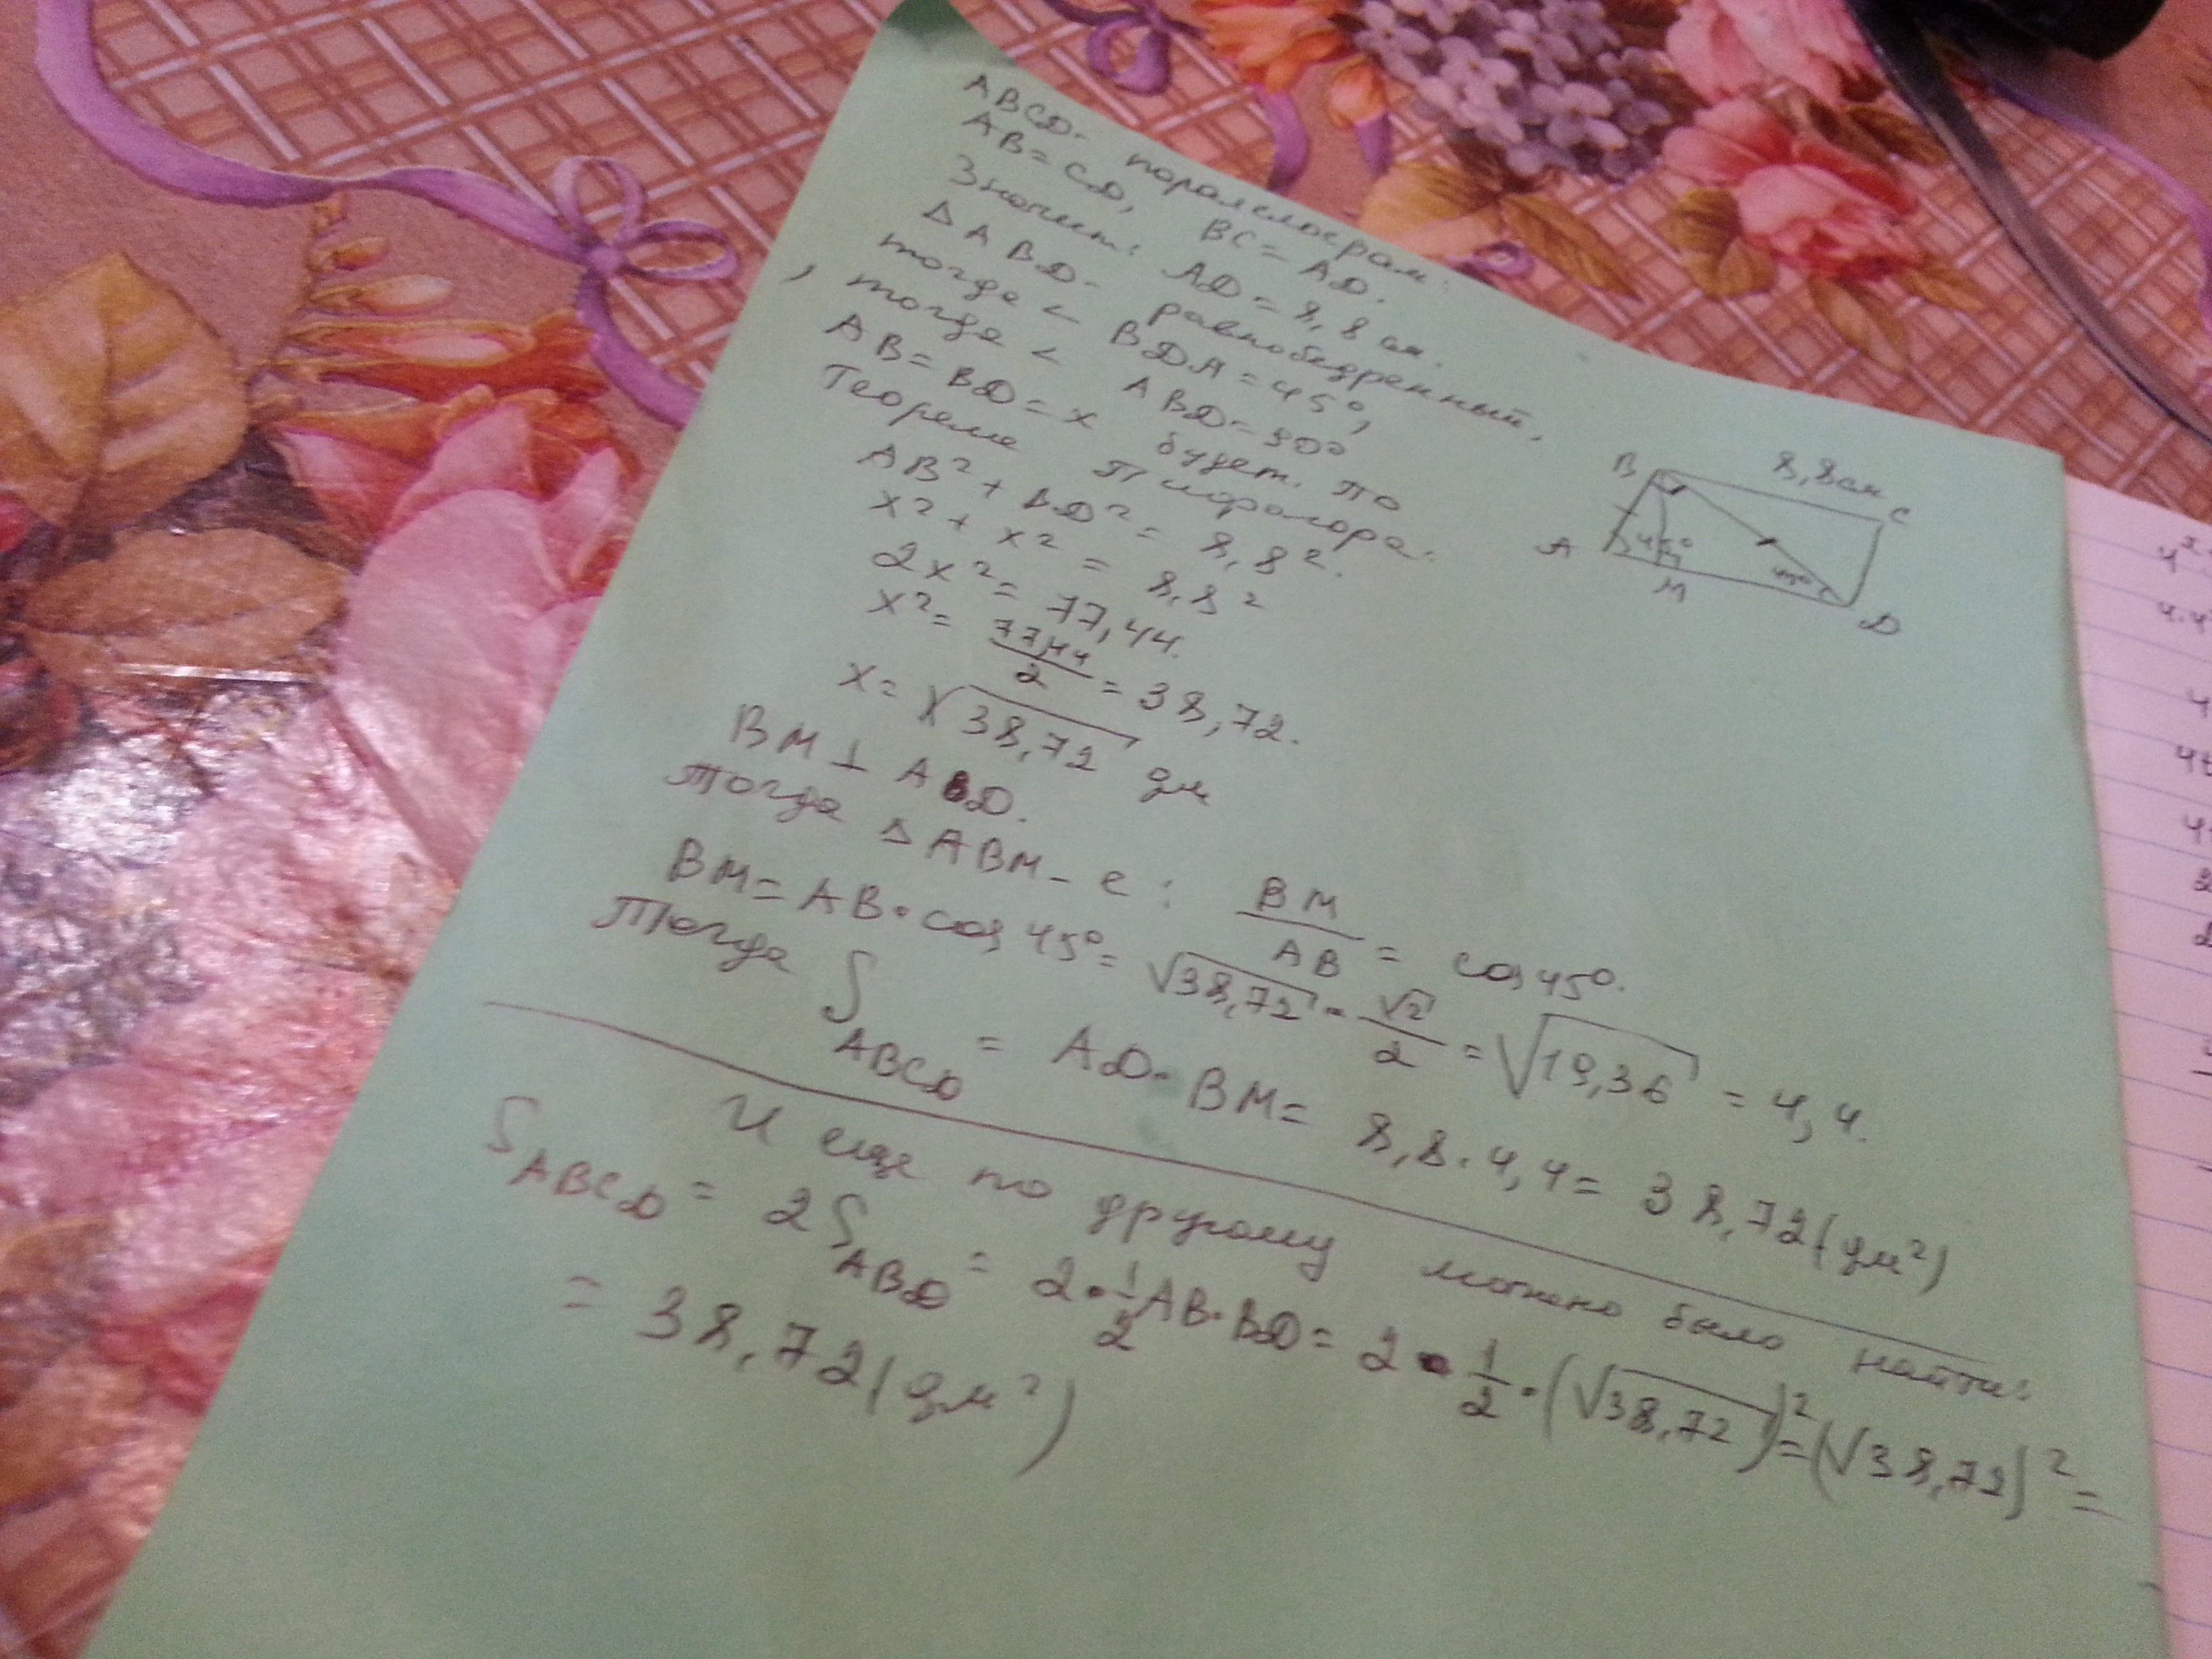 ABCD- паралелограм:
AB=CD, BC=AD.
Значит: AD=8,8 см.
Δ ABD- равнобедренный,
тогда < BDA=45°,
, тогда < ABD=90°
AB=BD=x будет. По
Теореме Пифагора.
AB²+BD²=8,8².
x²+x²=8,8²
2x²=77,44.
x²=77,44/2=38,72.
x=√38,72 дм
BM⊥AD.
Тогда ΔABM-е: BM/AB=cos45°.
BM=AB·cos45°=√38,72·√2/2=√19,36=4,4.
Тогда S ABCD=AD·BM=8,8·4,4=38,72(дм²)
И еще по другому можно было найти:
S ABCD=2S ABD=2·1/2AB·BD=2·1/2·(√38,72)²=(√38,72)²=
=38,72(дм²)
B 8,8см C
A 45° M 45° D